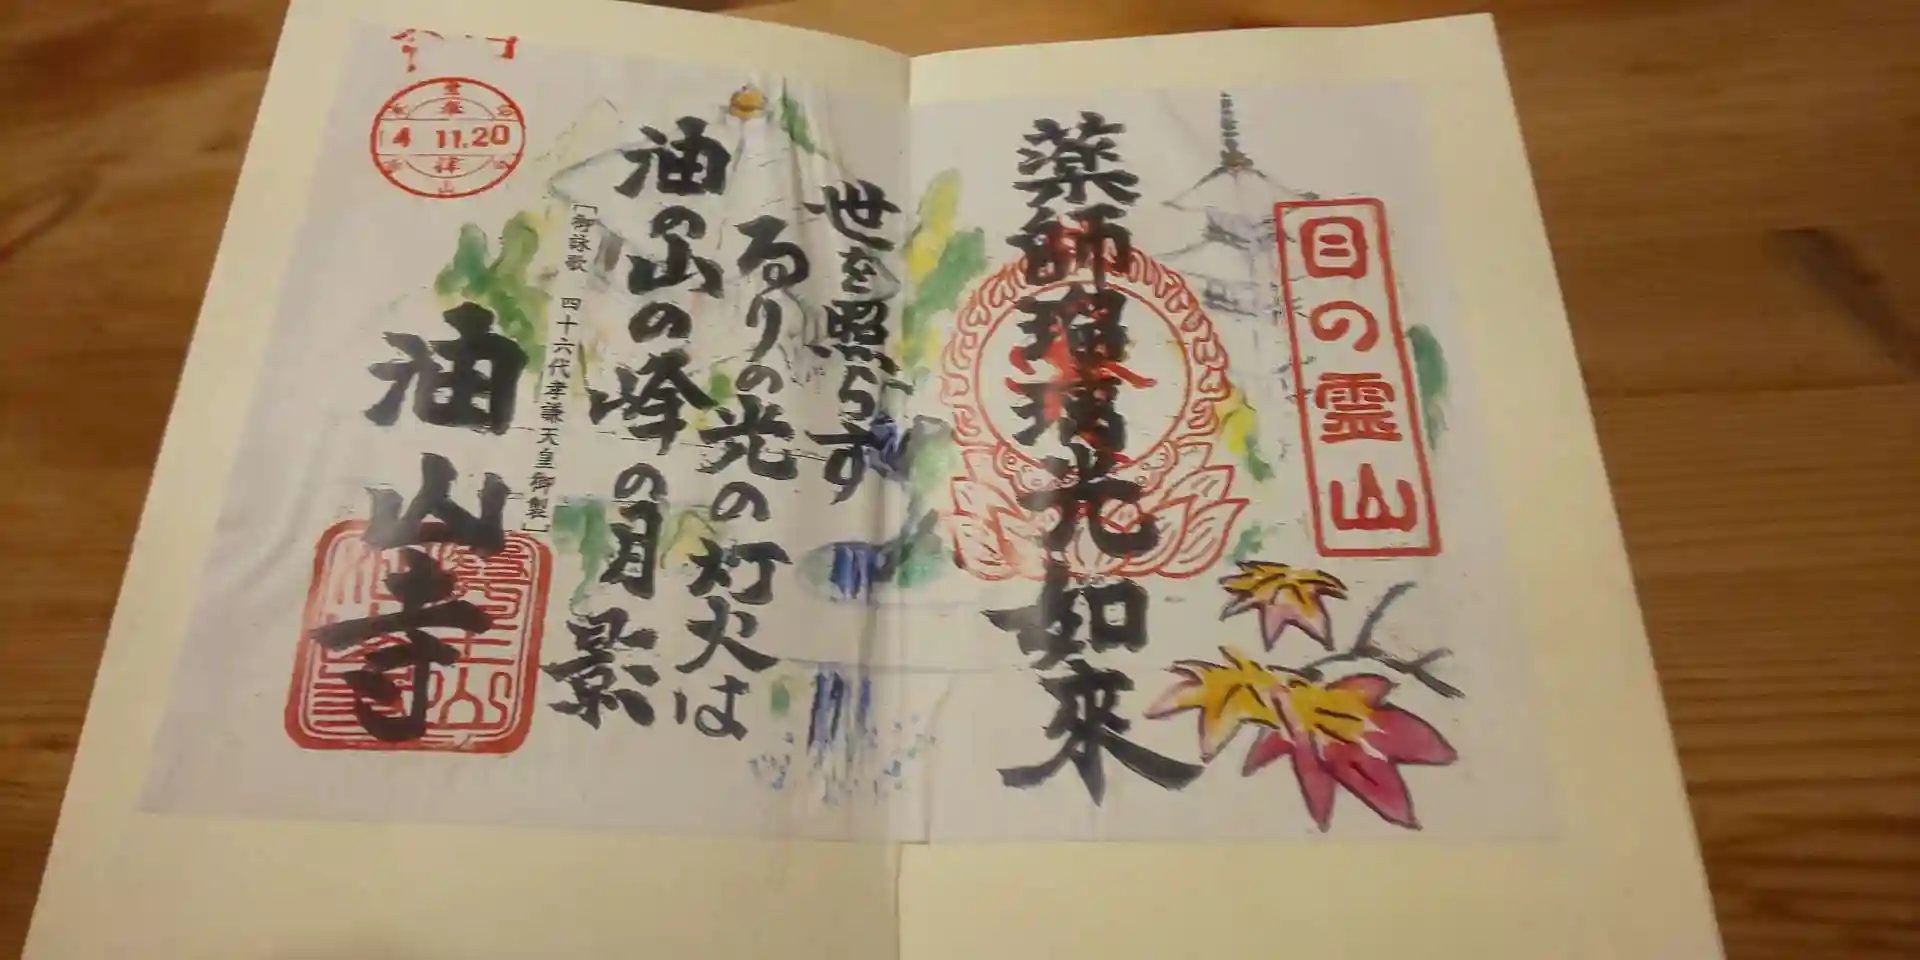 目の霊山
薬師瑠璃光如来
世を照らす
るりの光の灯火は
油の山の峰の月影
［御詠歌　四十六代孝謙天皇御製］
油山寺
4 11.20